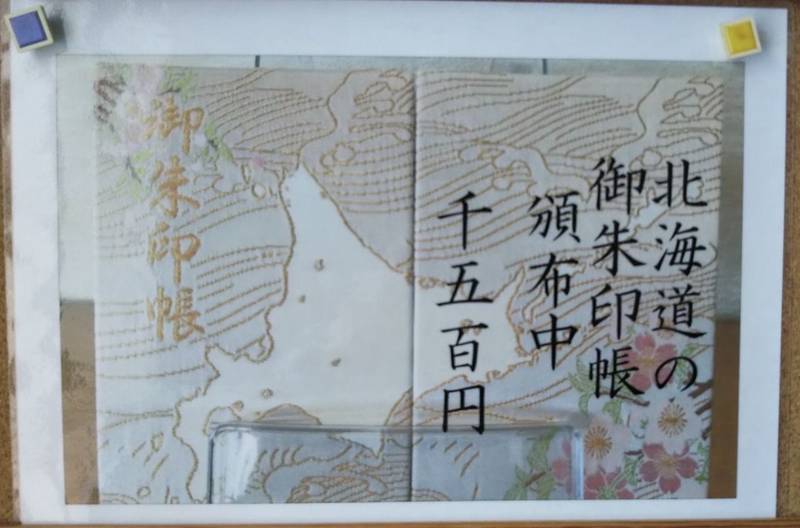 北海道の
御朱印帳
頒布中
千五百円
御朱印帳